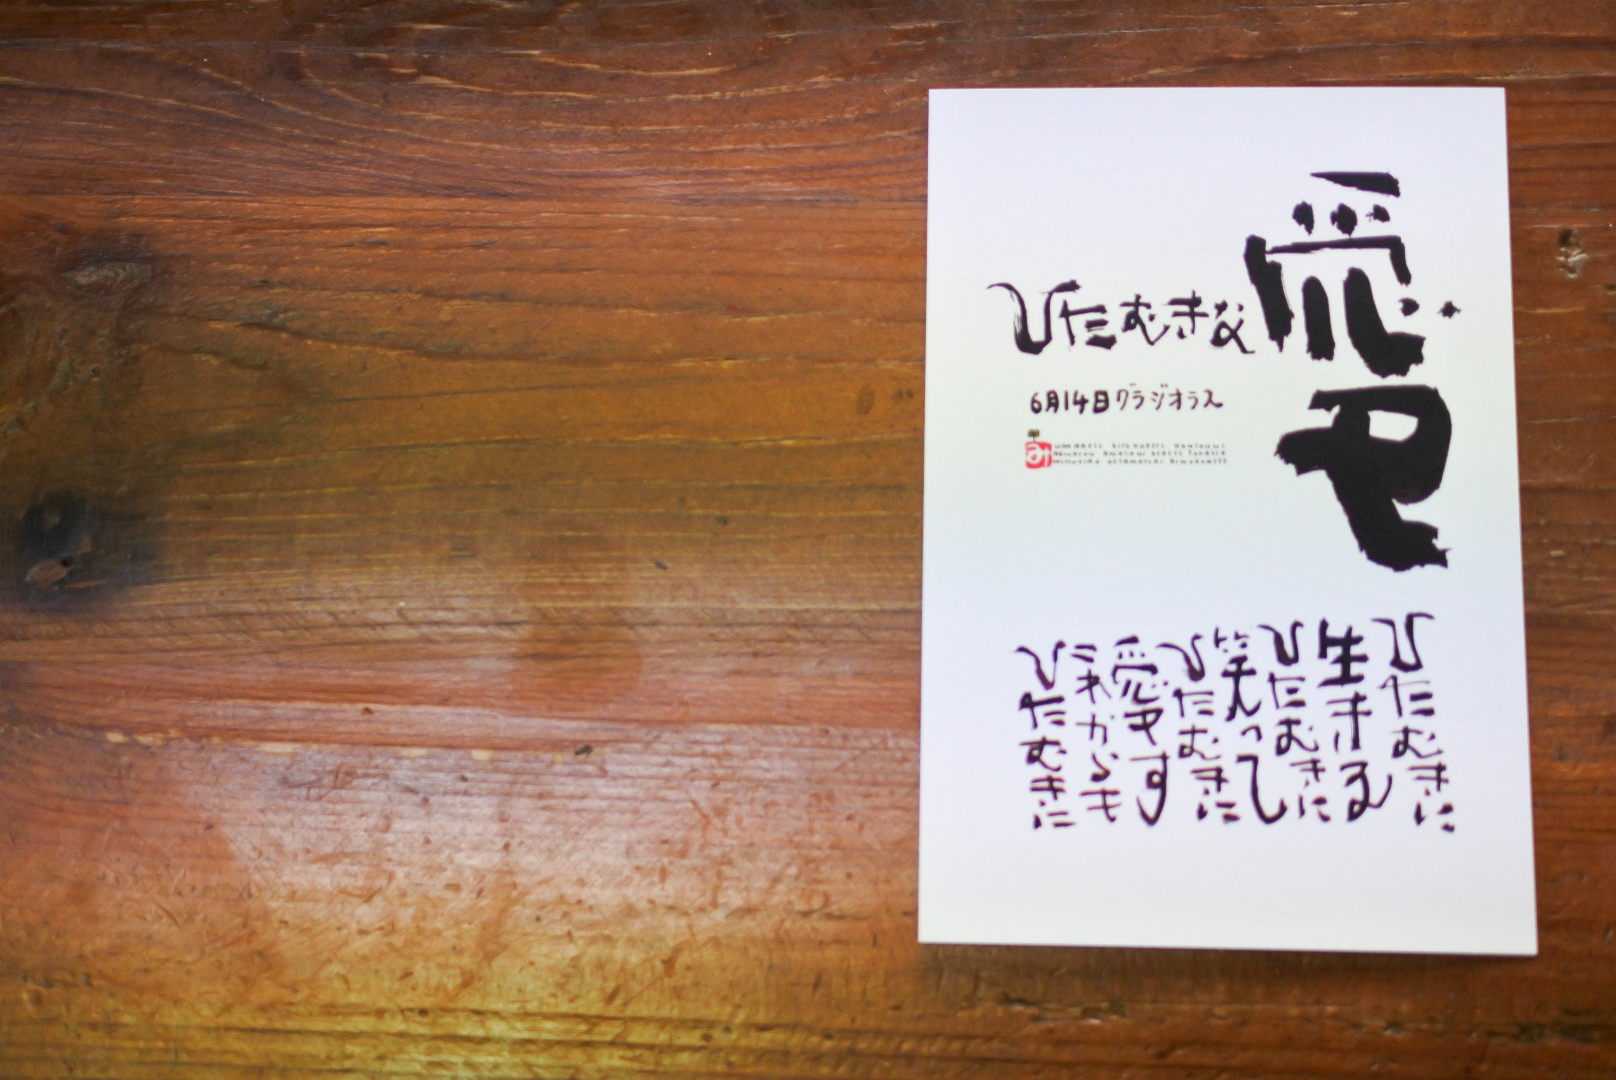 ひたむきな
愛
6月14日グラジオラス
み
ひたむきに
生きる
ひたむきに
笑って
ひたむきに
愛す
これからも
ひたむきに